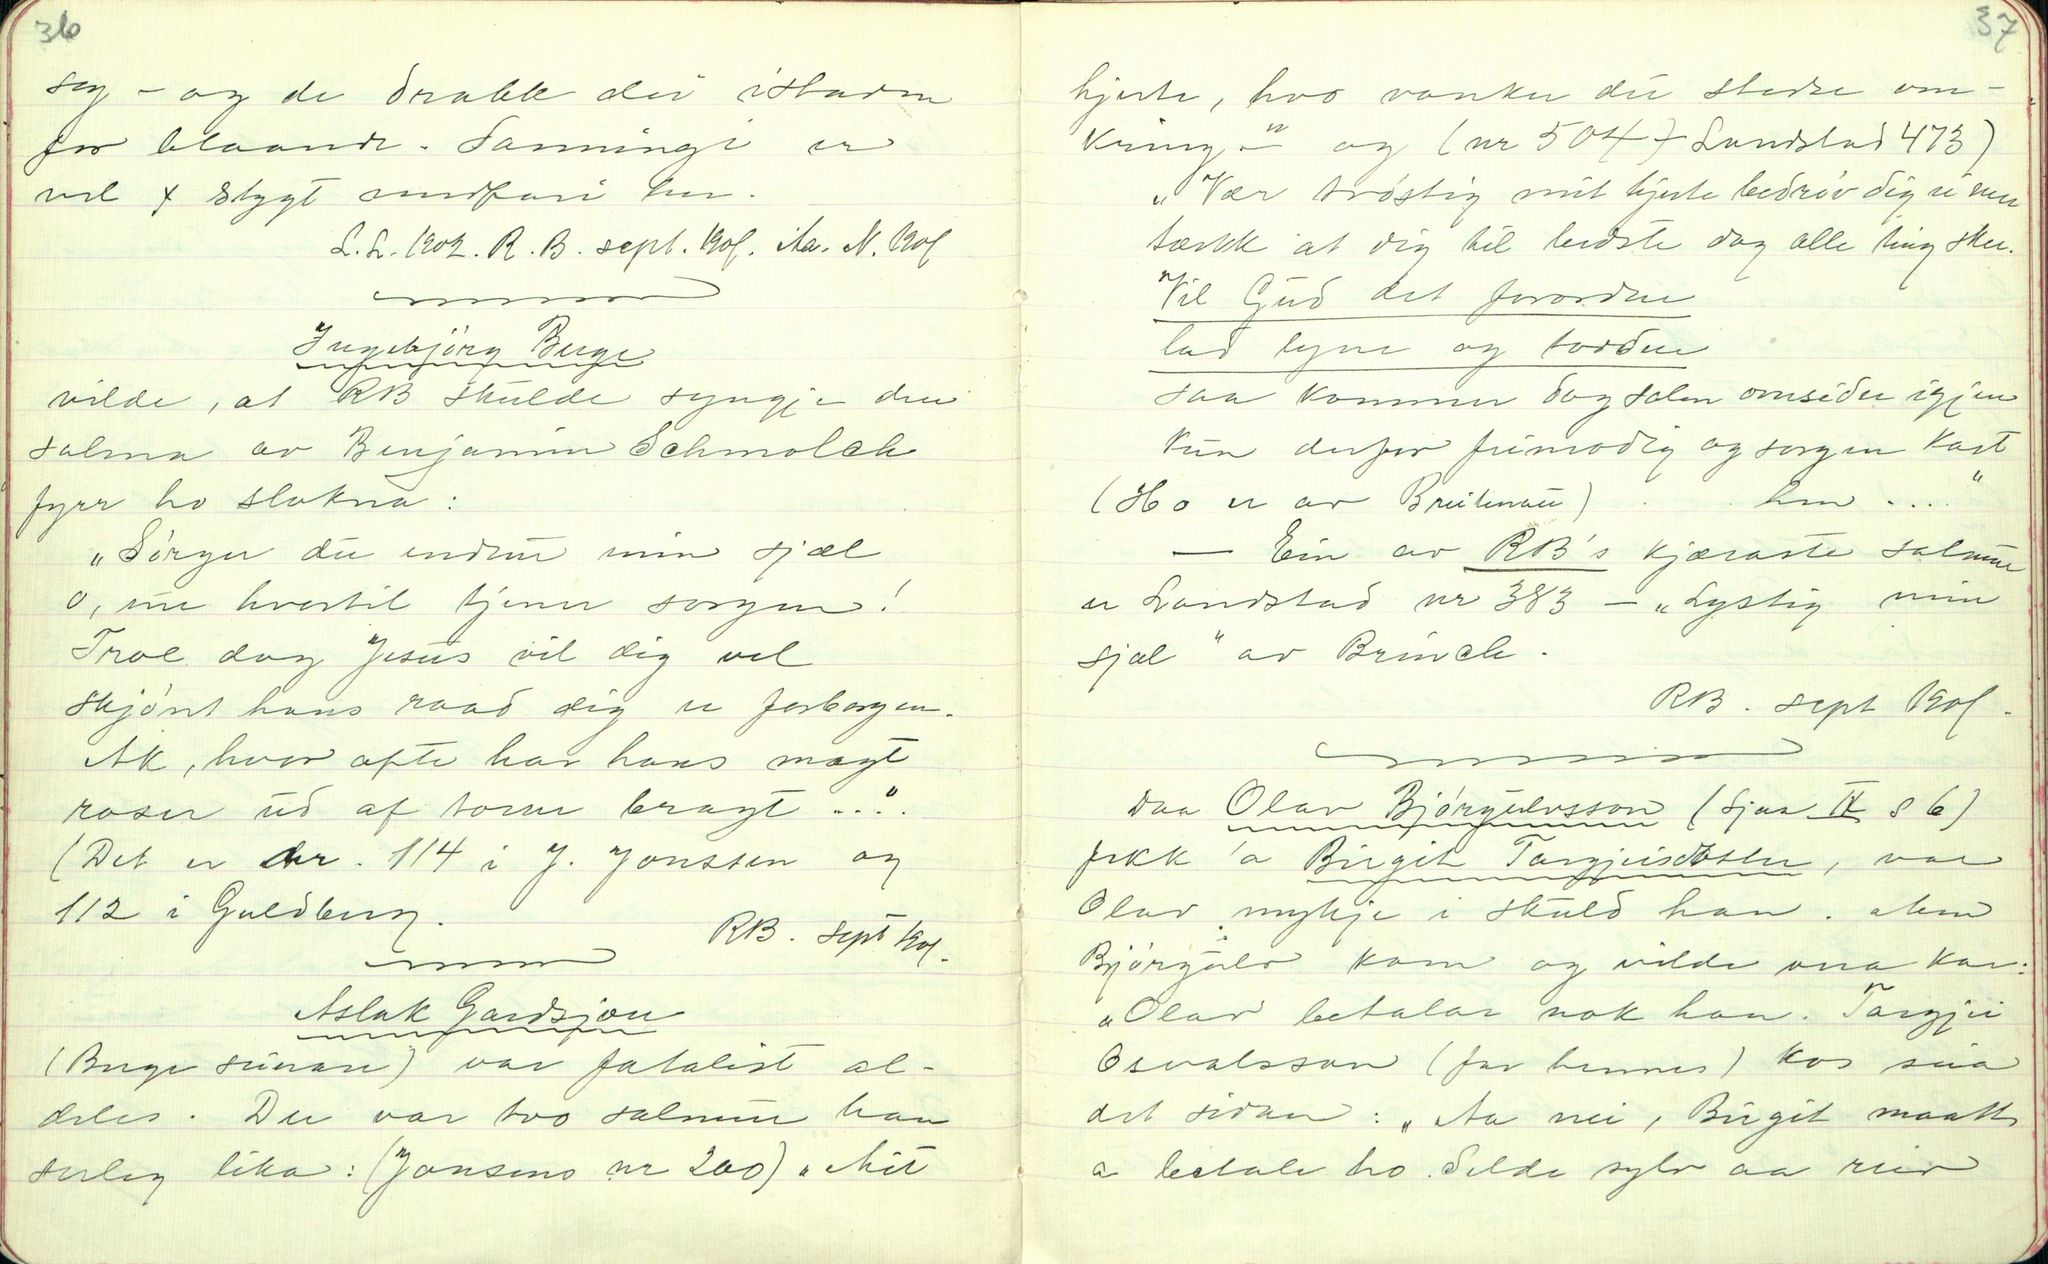 36
seg – og de drakk dei istaden
for blaande. Sanningi er
vel × stygt medfari her.
L.L. 1902. R.B. sept. 1908. Aa. N. 1908
Ingebjörg Berge
vilde, at RB skulde syngje den
salma av Benjamin Schmolck
fyrr ho slokna:
„Sörger du endnu min sjæl
o, nei hvortil tjener sorgen!
Troe dog Jesus vil dig vel
skjönt hans raad dig er forborgen.
Ak, hvor ofte har hans magt
roser ud af torne bragt ...."
(Det er nr. 114 i J. Jonssen og
112 i Guldberg.
RB. sept 1908.
Aslak Gardsjon
(Berge sunare) var fatalist al-
deles. Der var tvo salmur han
serleg lika: (Jonsens nr 200) „Mit
37
hjerte, hvo vanker du stedse om-
kring –" og (nr 504 + Landstad 473)
„Vær tröstig mit hjerte bedröv dig ei mer
tænk at dig til bedste dog alle ting sker.
Vil Gud det forordne
lad lyne og tordne
saa kommer dog solen omsider igjen
Kun derfor frimodig og sorgen kast
(Ho er av Breitenau) hen ...."
– Ein av RB's kjæraste salmur
er Landstad nr 383 – „Lystig min
sjæl" av Brinch.
RB. sept 1908.
Daa Olav Björgulvsson (sjaa IV s 6)
fekk 'a Birgit Targjeisdotter, var
Olav mykje i skuld han. Men
Björgulv kom og vilde vera kar:
„Olav betalar nok han. Targjei
Osvalsson (far hennes) kos seia
det sidan: „Aa nei, Birgit maatte
a betale ho. Selde sylv aa reiv